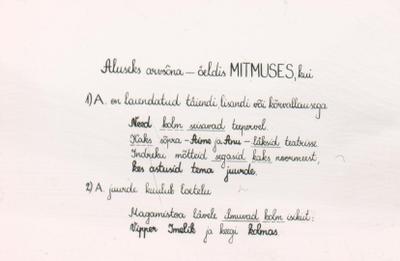 Aluseks arvsõna – öeldis MITMUSES, kui
1) A. on laiendatud täiendi, lisandi või kõrvallausega
Need kolm seisavad teepervel.
Kaks sõpra – Aime ja Anu – läksid teatrisse.
Indreku mõtteid segasid kaks noormeest,
kes astusid tema juurde.
2) A. juurde kuulub loetelu
Magamistoa lävele ilmuvad kolm isikut:
Vipper Imelik ja keegi kolmas.